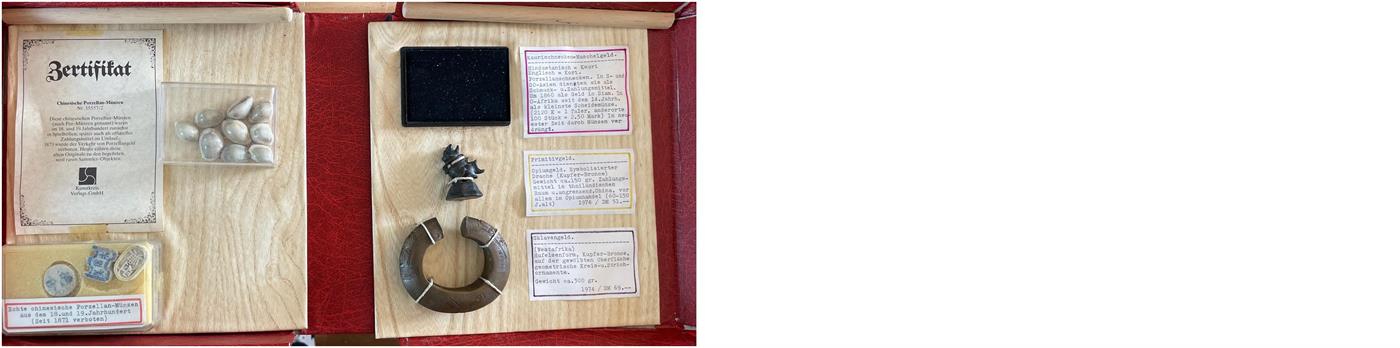 Zertifikat
Chinesische Porzellan-Münzen
Nr. 35557/2
Diese chinesischen Porzellan-Münzen
(auch Pee-Münzen genannt) waren
im 18. und 19. Jahrhundert zunächst
in Spielhöllen, später auch als offizielles
Zahlungsmittel im Umlauf.
1871 wurde der Verkehr von Porzellangeld
verboten. Heute zählen diese
alten Originale zu den begehrten,
weil raren Sammler-Objekten.
Kunstkreis
Verlags-GmbH
Echte chinesische Porzellan-Münzen
aus dem 18.und 19.Jahrhundert
(Seit 1871 verboten)
Kaurischnecken-Muschelgeld.
Hindustanisch = Kauri
Englisch =
Porzellanschnecken. In S- und
SO-Asien dienten sie als
Schmuck- u.Zahlungsmittel.
Um 1860 als Geld in Siam. In
O-Afrika seit dem 14.Jahrh.
als kleinste Scheidemünze.
(2120 K = 1 Taler, anderorts
100 Stück = 2.50 Mark) In neu-
ester Zeit durch Münzen ver
drängt.
Primitivgeld.
Opiumgeld. Symbolisierter
Drache (Kupfer-Bronce)
Gewicht ca.150 gr. Zahlungs-
mittel im thailändischen
Raum u.angrenzend.China, vor
allem im Opiumhandel (60-150
J.alt) 1976 / DM 51.--
Sklavengeld.
(Westafrika)
Hufeisenform, Kupfer-Bronce,
auf der gewölbten Oberfläche
geometrische Kreis-u.Strich-
ornamente.
Gewicht ca.300 gr.
1974 / DM 69.--